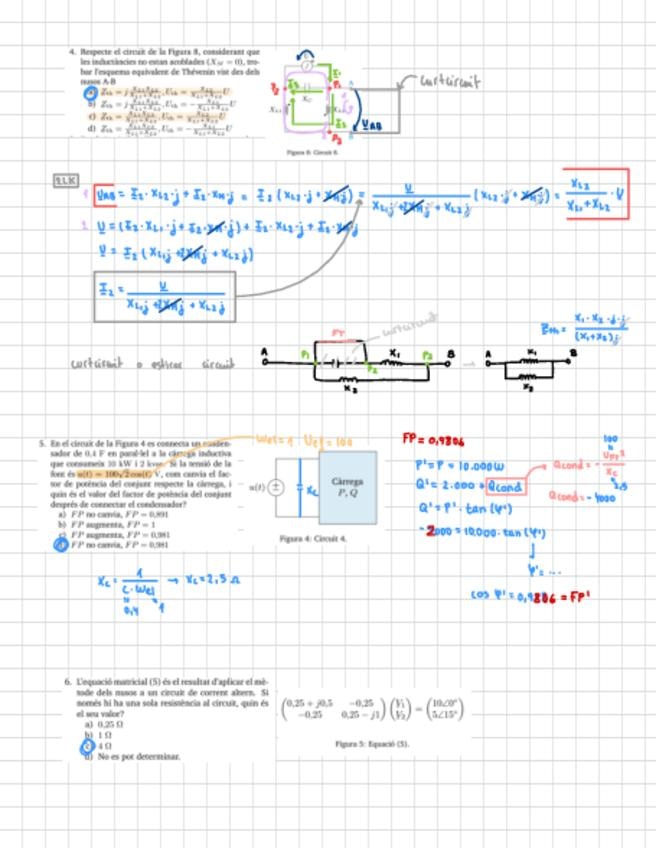 4. Respecte el circuit de la Figura 8, considerant que
les inductàncies no estan acoblades (X_M = 0), tro-
bar l'esquema equivalent de Thévenin vist des dels
nusos A-B
a)
b)
c)
d)
curtcircuit
U_AB
Figura 8: Circuit 8.
2LK
U_AB = I_2 · X_L2 · j + I_2 · X_M · j = I_2 (X_L2 · j + X_M j) = U / (X_L1 j + 2X_M j + X_L2 j) (X_L2 · j + X_M j) = X_L2 / (X_L1 + X_L2) · U
U = (I_2 · X_L1 · j + I_2 · X_M · j) + I_2 · X_L2 · j + I_2 · X_M j
U = I_2 (X_L1 j + 2X_M j + X_L2 j)
I_2 = U / (X_L1 j + 2X_M j + X_L2 j)
curtcircuit
curtcircuit o estirar circuit
A P1 P2 X_1 P3 B
X_2
A X_1 B
X_2
Z_th = X_1 · X_2 · j · j / (X_1 + X_2) j
5. En el circuit de la Figura 4 es connecta un conden-
sador de 0,4 F en paral·lel a la càrrega inductiva
que consumeix 10 kW i 2 kvar. Si la tensió de la
font és u(t) = 100√2 cos(t) V, com canvia el fac-
tor de potència del conjunt respecte la càrrega, i
quin és el valor del factor de potència del conjunt
després de connectar el condensador?
a) FP no canvia, FP = 0,891
b) FP augmenta, FP = 1
c) FP augmenta, FP = 0,981
d) FP no canvia, FP = 0,981
Wel = 1 Uef = 100
u(t)
X_C
Càrrega
P, Q
Figura 4: Circuit 4.
FP = 0,9806
P' = P = 10.000 W
Q' = 2.000 + Qcond
Q' = P' · tan(φ')
-2000 = 10.000 · tan(φ')
φ' = ...
cos φ' = 0,9806 = FP'
100
Qcond = - U² / X_C
2,5
Qcond = -4000
X_C = 1 / (C · Wel) → X_C = 2,5 Ω
0,4 1
6. L'equació matricial (5) és el resultat d'aplicar el mè-
tode dels nusos a un circuit de corrent altern. Si
només hi ha una sola resistència al circuit, quin és
el seu valor?
a) 0,25 Ω
b) 1 Ω
c) 4 Ω
d) No es pot determinar.
(0,25 + j0,5 −0,25) (V_1) = (10∠0°)
(−0,25 0,25 − j1) (V_2) (5∠15°)
Figura 5: Equació (5).